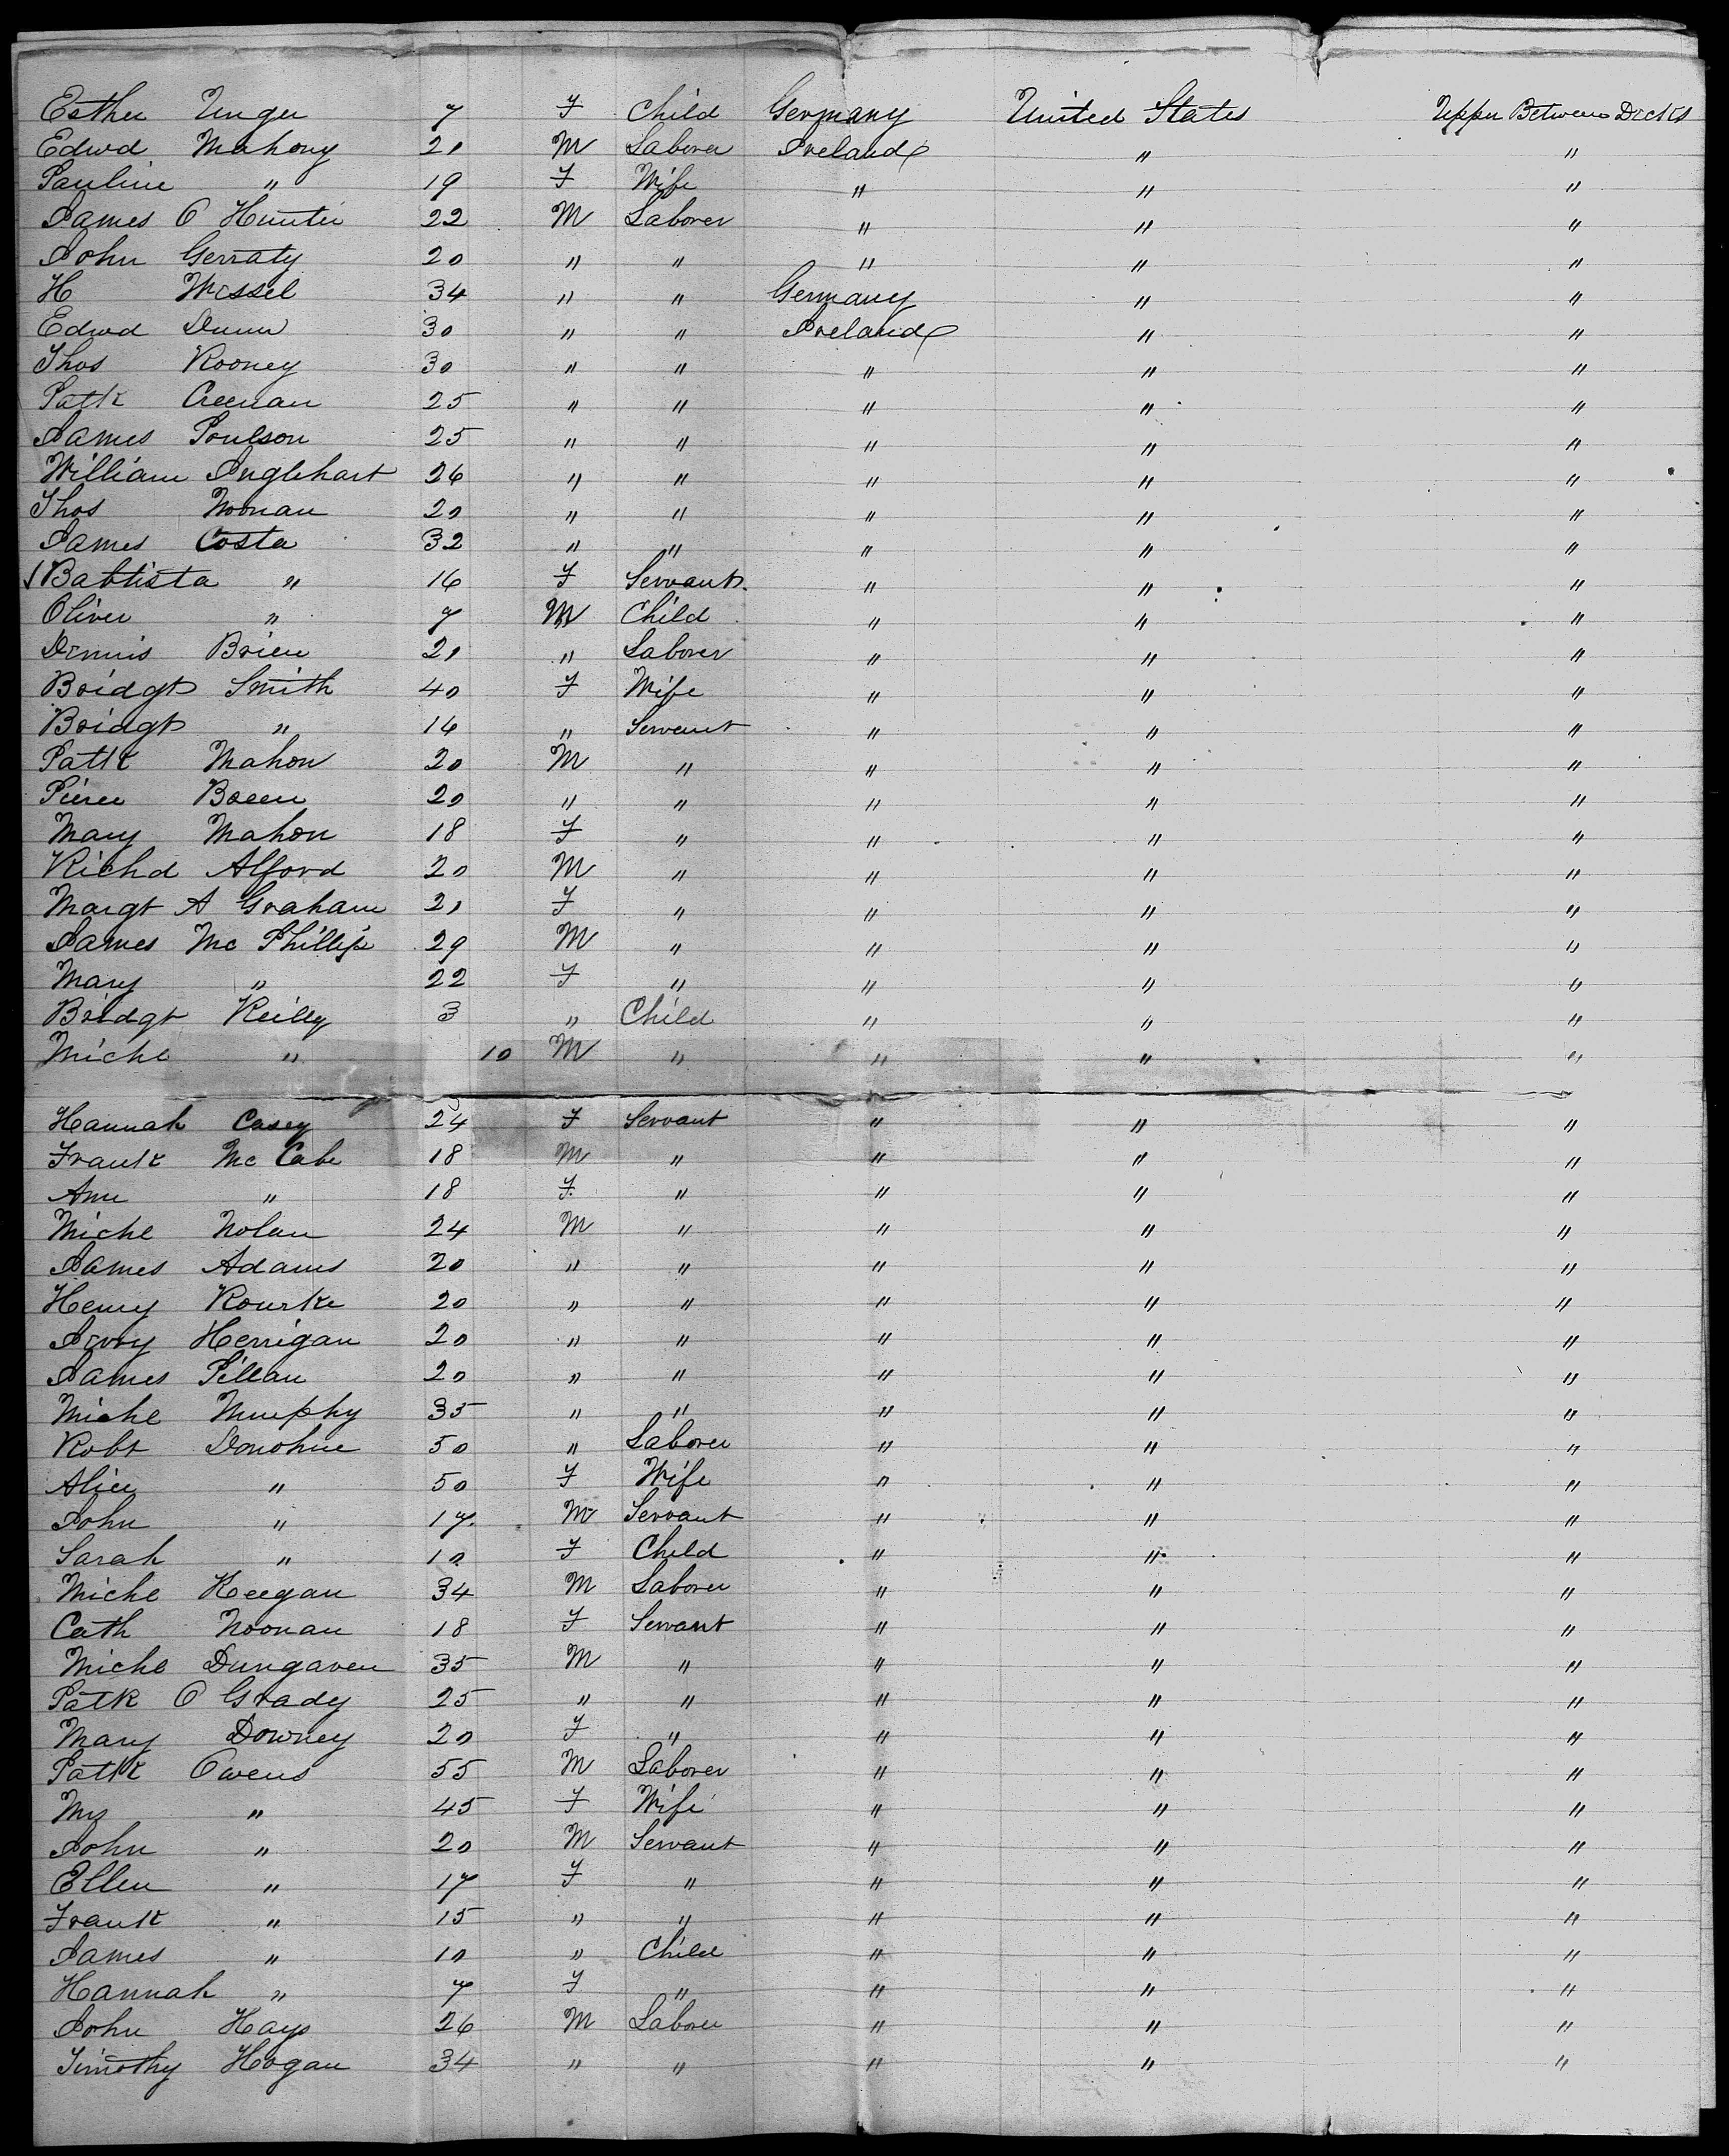 Esther Unger 7 F Child Germany United States Upper Between Decks
Edwd Mahony 21 M Laborer Ireland " "
Pauline " 19 F Wife " " "
James O Hunter 22 M Laborer " " "
John Gerraty 20 " " " " "
H Wessel 34 " " Germany " "
Edwd Dunn 30 " " Ireland " "
Thos Rooney 30 " " " " "
Patk Creenan 25 " " " " "
James Poulson 25 " " " " "
William Inglehart 26 " " " " "
Thos Noonan 20 " " " " "
James Costa 32 " " " " "
Babtista " 16 F Servant " " "
Oliver " 7 M Child " " "
Dennis Brien 21 " Laborer " " "
Bridgt Smith 40 F Wife " " "
Bridgt " 14 " Servant " " "
Patk Mahon 20 M " " " "
Pierce Breen 20 " " " " "
Mary Mahon 18 F " " " "
Richd Alford 20 M " " " "
Margt A Graham 21 F " " " "
James Mc Phillips 29 M " " " "
Mary " 22 F " " " "
Bridgt Reilly 3 " Child " " "
Michl " 10 M " " " "
Hannah Casey 24 F Servant " " "
Frank Mc Cabe 18 M " " " "
Ann " 18 F " " " "
Michl Nolan 24 M " " " "
James Adams 20 " " " " "
Henry Rourke 20 " " " " "
Jerry Herrigan 20 " " " " "
James Pillan 20 " " " " "
Michl Murphy 35 " " " " "
Robt Donohue 50 " Laborer " " "
Alice " 50 F Wife " " "
John " 17 M Servant " " "
Sarah " 10 F Child " " "
Michl Keegan 34 M Laborer " " "
Cath Noonan 18 F Servant " " "
Michl Dungaven 35 M " " " "
Patk O Grady 25 " " " " "
Mary Downey 20 F " " " "
Patk Owens 55 M Laborer " " "
Mrs " 45 F Wife " " "
John " 20 M Servant " " "
Ellen " 17 F " " " "
Frank " 15 " " " " "
James " 10 " Child " " "
Hannah " 7 F " " " "
John Hays 26 M Laborer " " "
Timothy Hogan 34 " " " " "